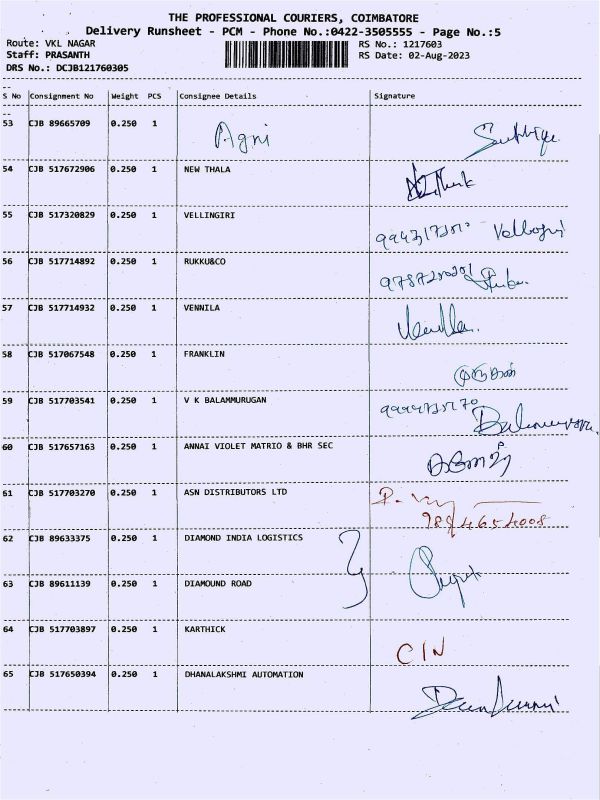 THE PROFESSIONAL COURIERS, COIMBATORE
Delivery Runsheet - PCM - Phone No.:0422-3505555 - Page No.:5
Route: VKL NAGAR RS No.: 1217603
Staff: PRASANTH RS Date: 02-Aug-2023
DRS No.: DCJB121760305
S No Consignment No Weight PCS Consignee Details Signature
53 CJB 89665709 0.250 1 Agni
54 CJB 517672906 0.250 1 NEW THALA
55 CJB 517320829 0.250 1 VELLINGIRI
56 CJB 517714892 0.250 1 RUKKU&CO
57 CJB 517714932 0.250 1 VENNILA
58 CJB 517067548 0.250 1 FRANKLIN
59 CJB 517703541 0.250 1 V K BALAMMURUGAN
60 CJB 517657163 0.250 1 ANNAI VIOLET MATRIO & BHR SEC
61 CJB 517703270 0.250 1 ASN DISTRIBUTORS LTD
62 CJB 89633375 0.250 1 DIAMOND INDIA LOGISTICS
63 CJB 89611139 0.250 1 DIAMOUND ROAD
64 CJB 517703897 0.250 1 KARTHICK CIN
65 CJB 517650394 0.250 1 DHANALAKSHMI AUTOMATION